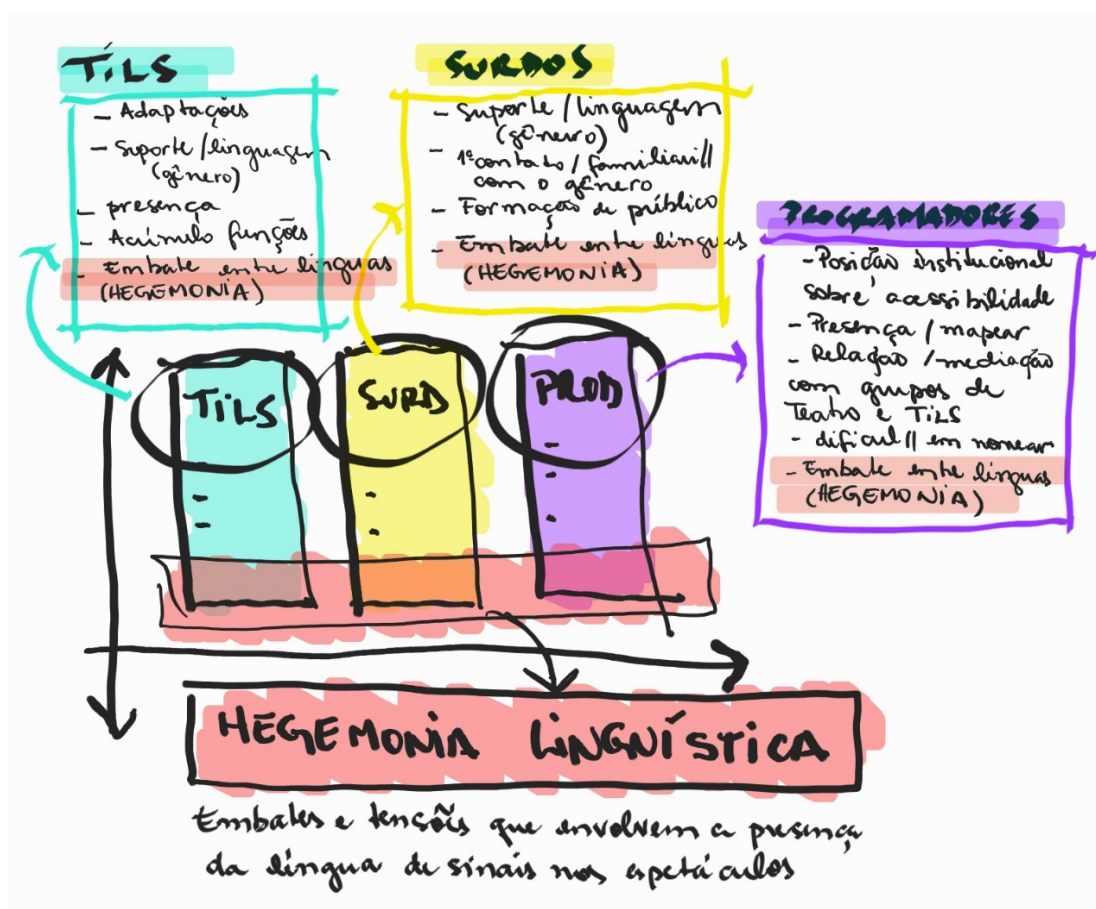 TILS
- Adaptações
- Suporte / linguagem
(gênero)
- presença
- Acúmulo funções
- Embate entre línguas
(HEGEMONIA)
SURDOS
- Suporte / linguagem
(gênero)
- 1º contato / familiari//
com o gênero
- Formação de público
- Embate entre línguas
(HEGEMONIA)
PROGRAMADORES
- Posição institucional
sobre acessibilidade
- Presença / mapear
- Relação / mediação
com grupos de
Teatro e TILS
- dificul// em nomear
- Embate entre línguas
(HEGEMONIA)
TILS
SURD
PROD
HEGEMONIA LINGNÍSTICA
Embates e tensões que envolvem a presença
da língua de sinais nos espetáculos